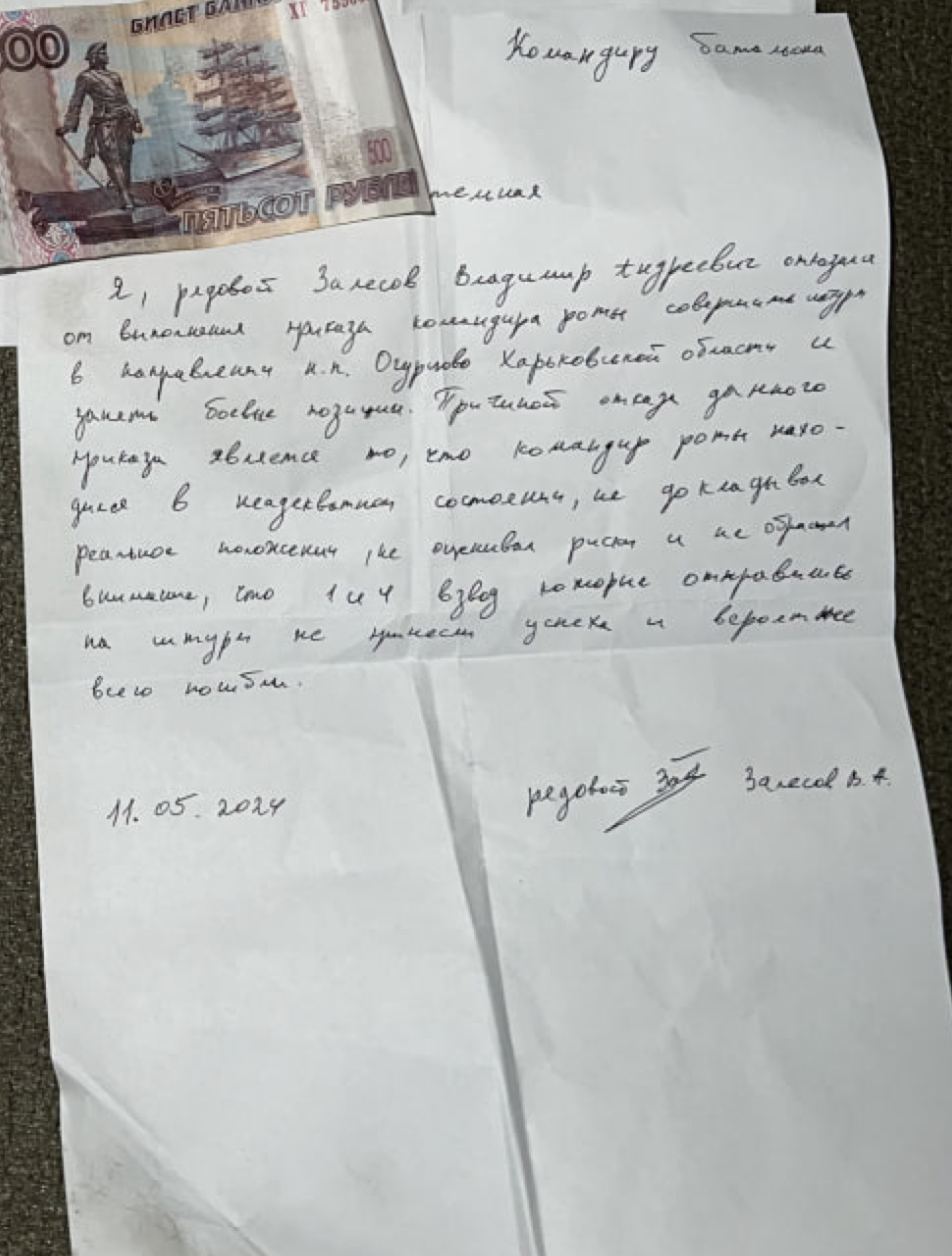 00
БИЛЕТ БАНК
ХГ
500
ПЯТЬСОТ РУБЛЕ
Командиру батальона
темная
Я, редовой Залесов Владимир Андреевич отказался
от выполнения приказа командира роты совершить штурм
в направлении н.п. Огурцово Харьковской области и
занять боевые позиции. Причиной отказа данного
приказа является то, что командир роты нахо-
дился в неадекватном состоянии, не докладывал
реальное положении, не оценивал риски и не обращал
внимание, что 1 и 4 взвод которые отправились
на штурм не принесли успеха и вероятнее
всего погибли.
11.05.2024
редовой Залесов В.А.